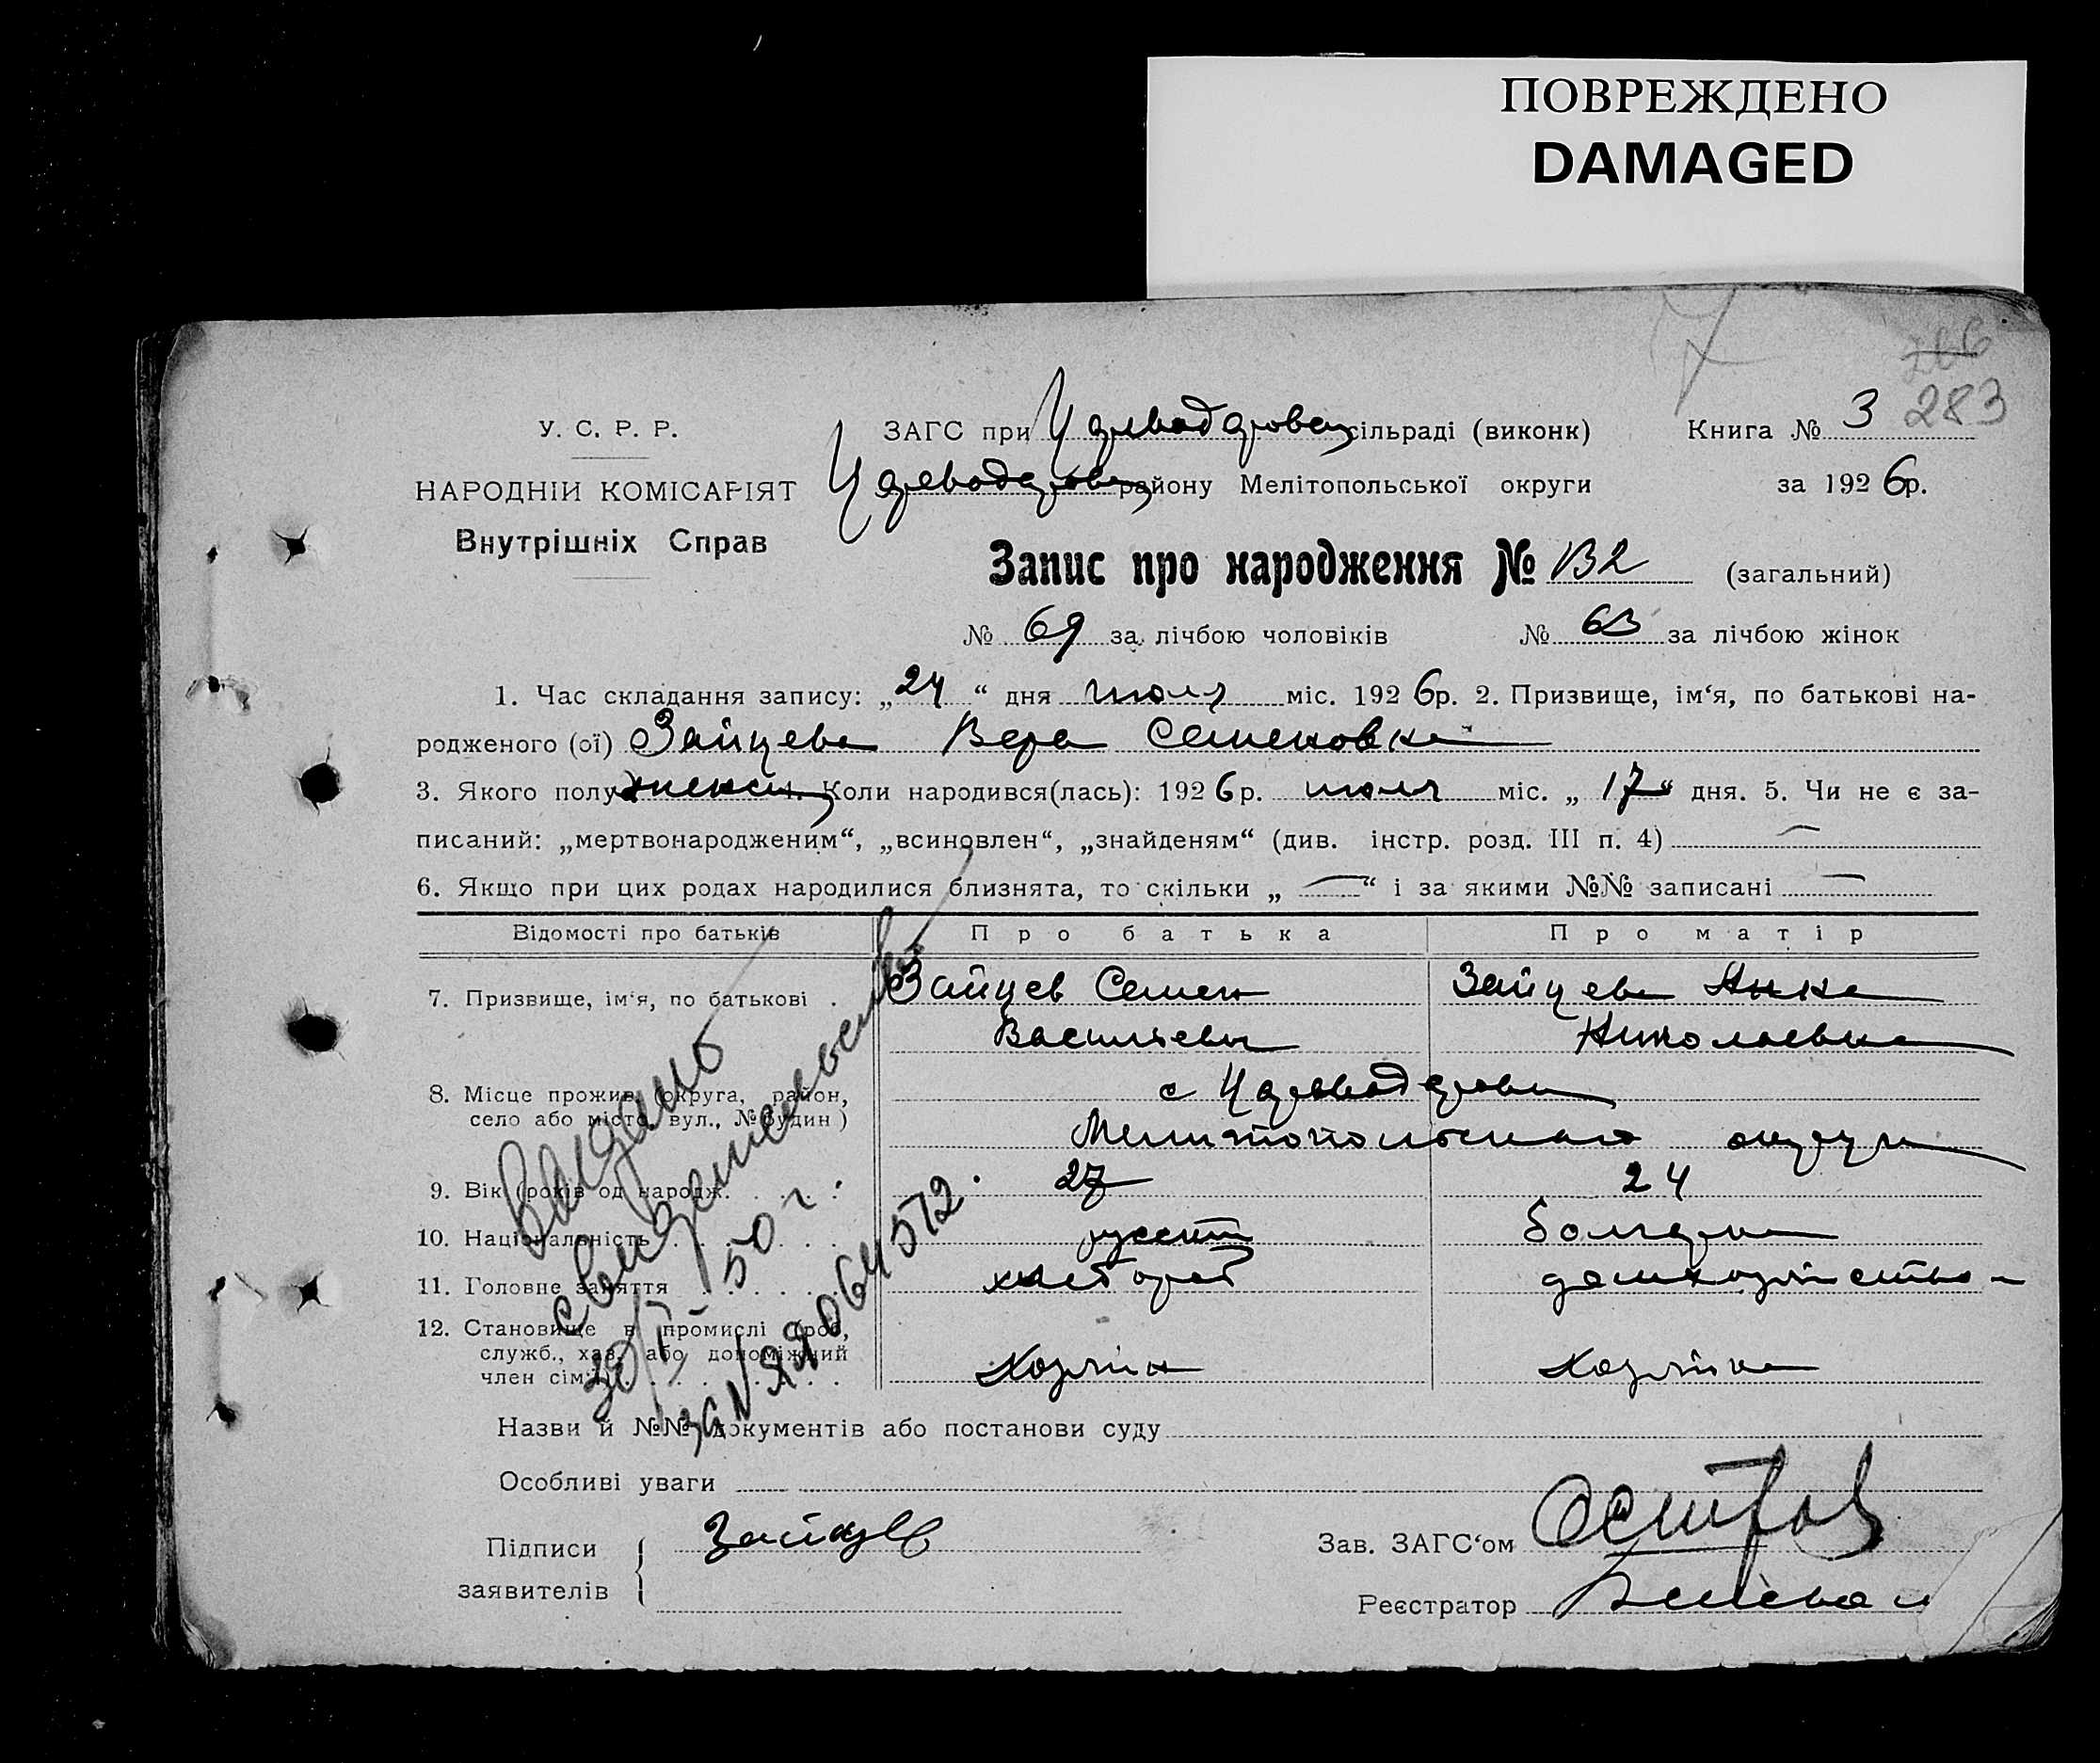 ПОВРЕЖДЕНО
DAMAGED
7
266
283
У. С. Р. Р.
НАРОДНІЙ КОМІСАРІЯТ
Внутрішніх Справ
ЗАГС при Цареводаровск сільраді (виконк)
Книга № 3
Цареводаровск району Мелітопольської округи
за 1926р.
Запис про народження № 132 (загальний)
№ 69 за лічбою чоловіків № 63 за лічбою жінок
1. Час складання запису: „24“ дня июля міс. 1926р. 2. Призвище, ім‘я, по батькові на-
родженого (ої) Зайцева Вера Семеновна
3. Якого полу женск 4. Коли народився(лась): 1926р. июля міс. „17“ дня. 5. Чи не є за-
писаний: „мертвонародженим“, „всиновлен“, „знайденям“ (див. інстр. розд. III п. 4) —
6. Якщо при цих родах народилися близнята, то скільки „ — “ і за якими №№ записані —
Відомості про батьків Про батька Про матір
7. Призвище, ім‘я, по батькові . Зайцев Семен Зайцева Анна
Васильевич Николаевна
8. Місце прожив. (округа, район,
село або місто, вул., № будин)
с Царевода
Мелитопольського округи
9. Вік (років од народж. 27 24
10. Національність русский болгарка
11. Головне заняття хлебороб домхозяйство
12. Становище в промислі (роб,
служб., хаз. або допоміжний
член сім‘ї)
Хозяин Хозяйка
Выдано
свидетельство
30/I - 50 г.
за № ЯЯ 064572.
Назви й №№ документів або постанови суду
Особливі уваги
Підписи
заявителів
Зайцев
Зав. ЗАГС‘ом
Реєстратор